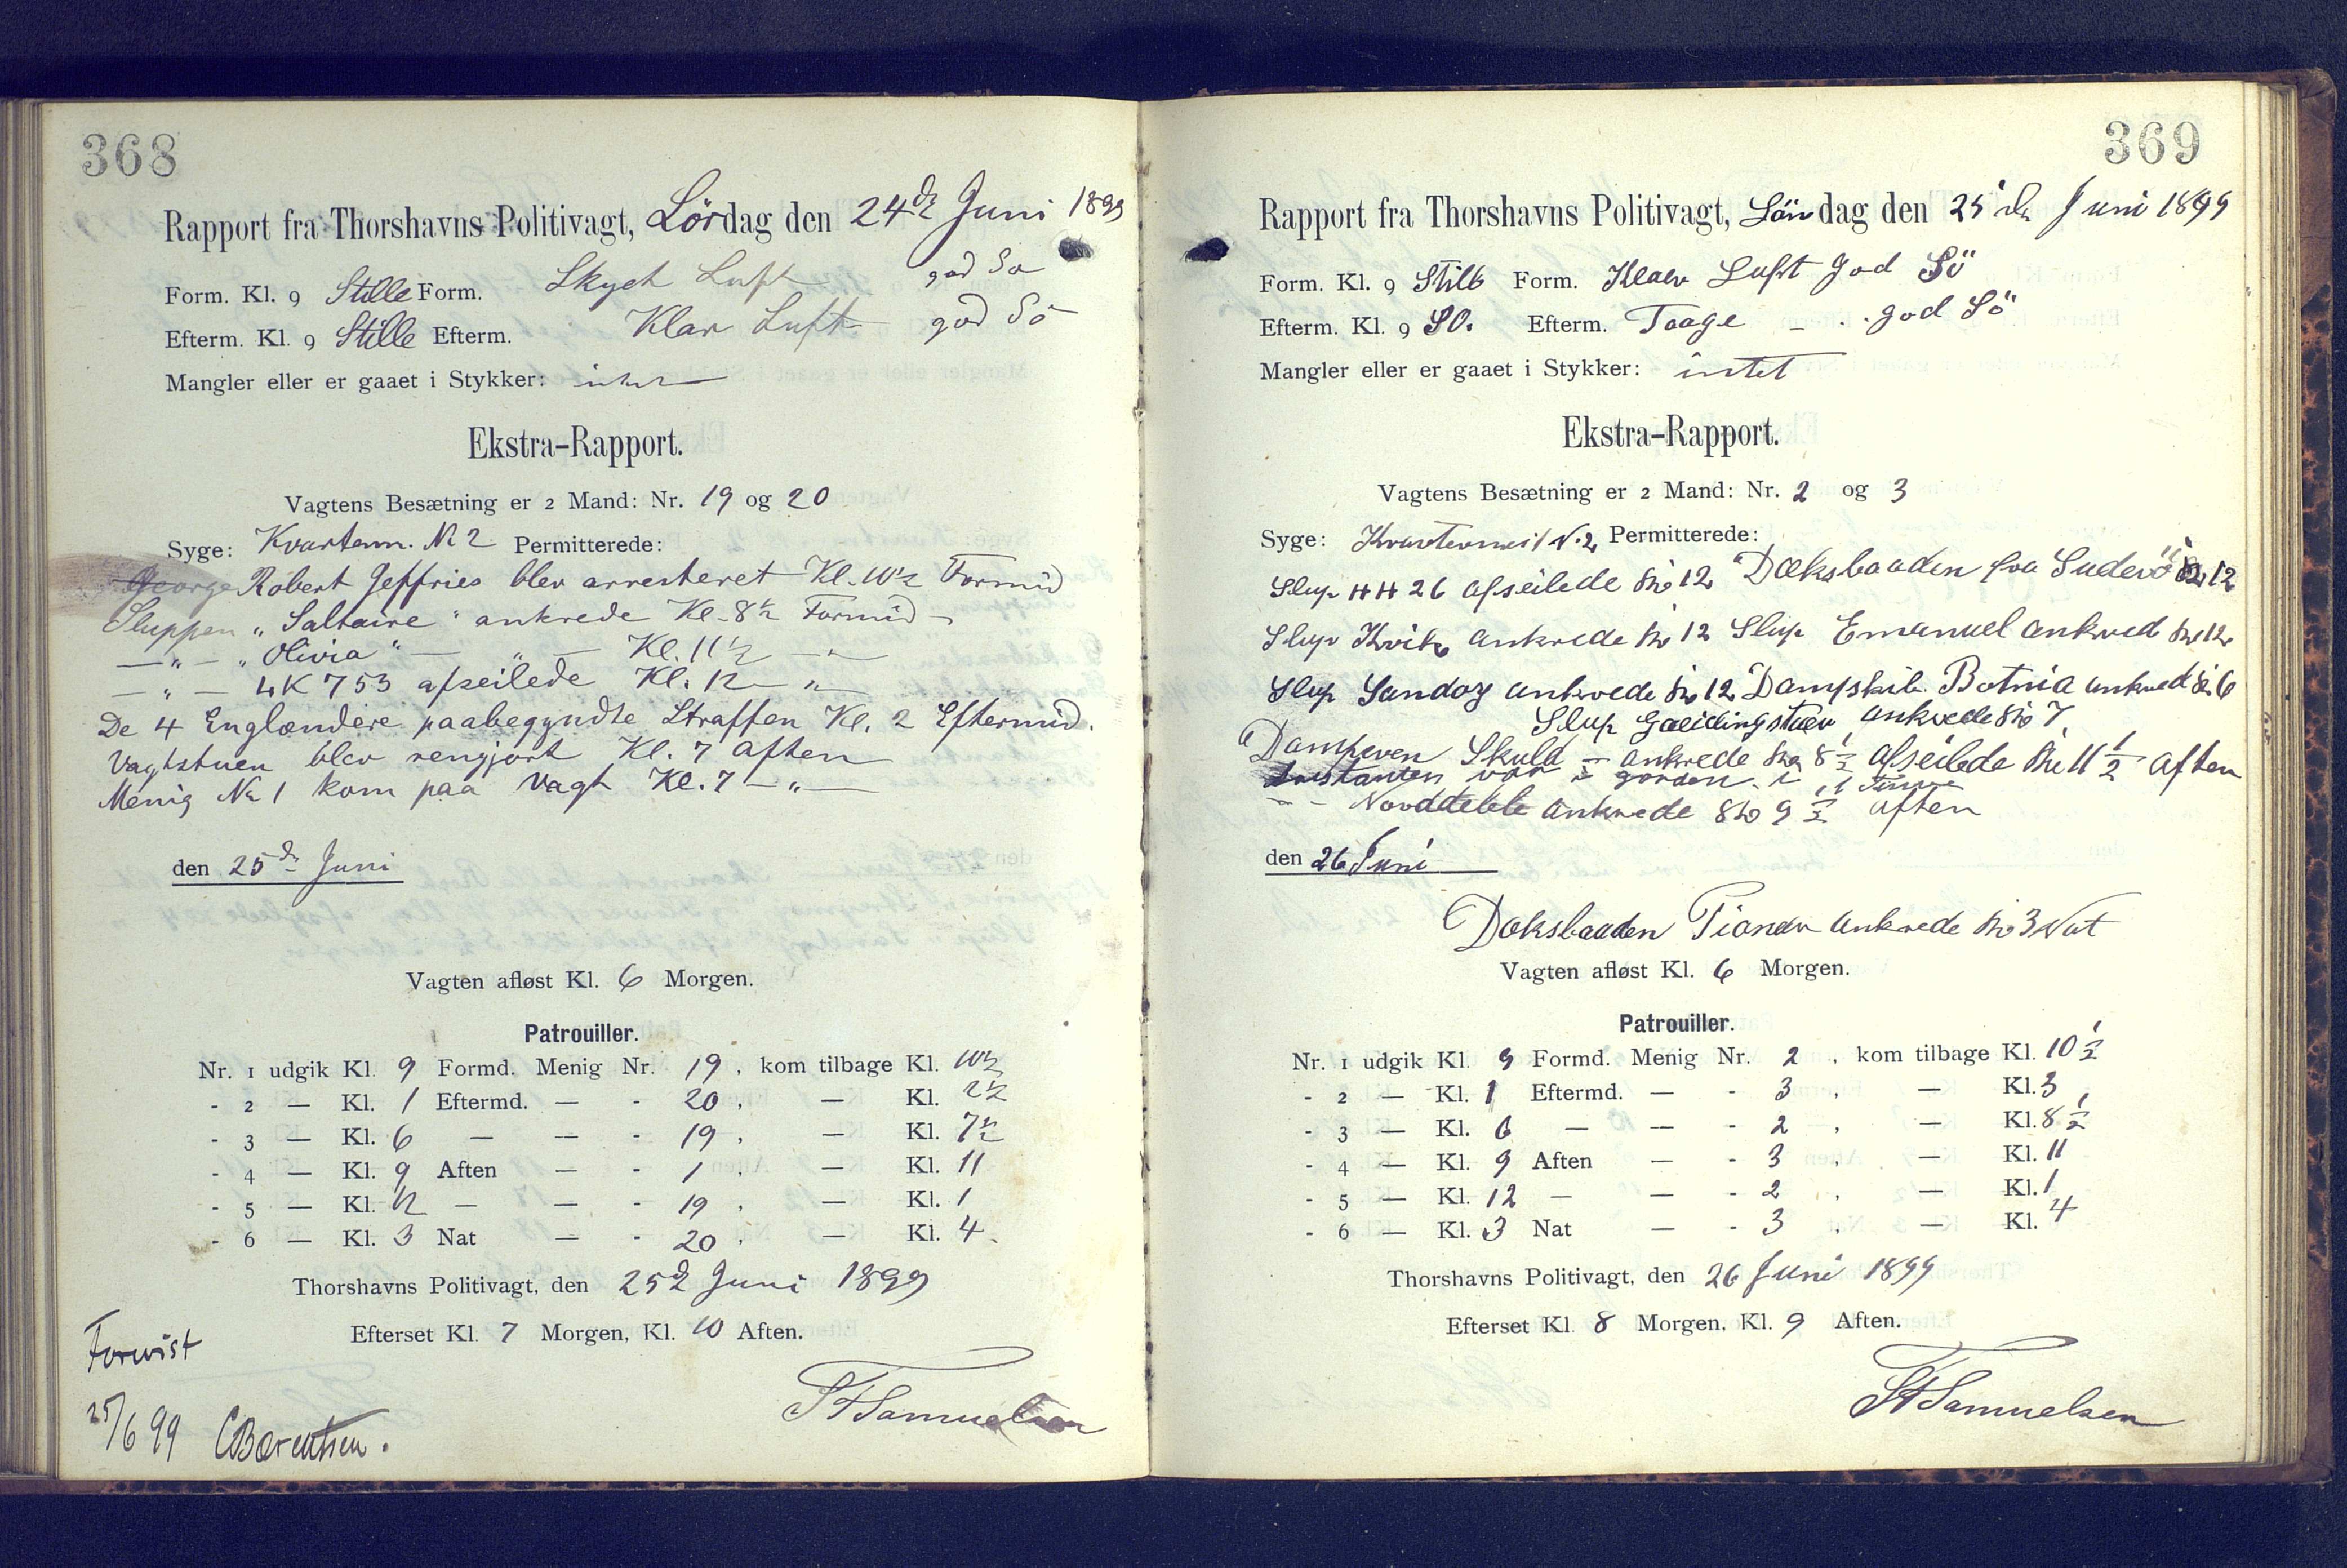 368
Rapport fra Thorshavns Politivagt, Lördag den 24de Juni 1899
Form. Kl. 9 Stille Form. Skyet Luft god Sö
Efterm. Kl. 9 Stille Efterm. Klar Luft god Sö
Mangler eller er gaaet i Stykker: intet
Ekstra-Rapport.
Vagtens Besætning er 2 Mand: Nr. 19 og 20
Syge: Kvarterm. No 2 Permitterede:
George Robert Jeffries blev arresteret Kl. 10½ Formid
Sluppen „Saltaire" ankrede Kl. 8½ Formid
—„— „Olivia" — „ — Kl. 11½ —„—
—„— LK 753 afseilede Kl. 12 —„—
De 4 Englændere paabegyndte Straffen Kl. 2 Eftermid.
Vagtstuen blev rengjort Kl. 7 Aften
Menig No 1 kom paa Vagt Kl. 7 —„—
den 25de Juni
Vagten afløst Kl. 6 Morgen.
Patrouiller.
Nr. 1 udgik Kl. 9 Formd. Menig Nr. 19, kom tilbage Kl. 10½
- 2 — Kl. 1 Eftermd. — - 20, — Kl. 2½
- 3 — Kl. 6 — — - 19, — Kl. 7½
- 4 — Kl. 9 Aften — - 1, — Kl. 11
- 5 — Kl. 12 — — - 19, — Kl. 1
- 6 — Kl. 3 Nat — - 20, — Kl. 4
Thorshavns Politivagt, den 25d Juni 1899
Efterset Kl. 7 Morgen, Kl. 10 Aften.
Forevist
25/6 99 CBærentsen.
Samuelsen
369
Rapport fra Thorshavns Politivagt, Söndag den 25de Juni 1899
Form. Kl. 9 Stille Form. Klar Luft god Sö
Efterm. Kl. 9 SO. Efterm. Taage — god Sö
Mangler eller er gaaet i Stykker: intet
Ekstra-Rapport.
Vagtens Besætning er 2 Mand: Nr. 2 og 3
Syge: N. 2 Permitterede:
Slup HH 26 afseilede 12 Dæksbaaden fra Suderö 12
Slup Kvik ankrede 12 Slup Emanuel ankred 12
Slup Sandoy ankrede 12 Dampskib Botnia ankred 6
Slup ankrede 7
Damperen Skuld — ankrede 8½ afseilede 11½ aften
var i
ankrede 9½ aften
den 26 Juni
Doksbaaden Pioner ankrede 3 Nat
Vagten afløst Kl. 6 Morgen.
Patrouiller.
Nr. 1 udgik Kl. 9 Formd. Menig Nr. 2, kom tilbage Kl. 10½
- 2 — Kl. 1 Eftermd. — - 3, — Kl. 3
- 3 — Kl. 6 — — - 2, — Kl. 8½
- 4 — Kl. 9 Aften — - 3, — Kl. 11
- 5 — Kl. 12 — — - 2, — Kl. 1
- 6 — Kl. 3 Nat — - 3, — Kl. 4
Thorshavns Politivagt, den 26 Juni 1899
Efterset Kl. 8 Morgen, Kl. 9 Aften.
Samuelsen